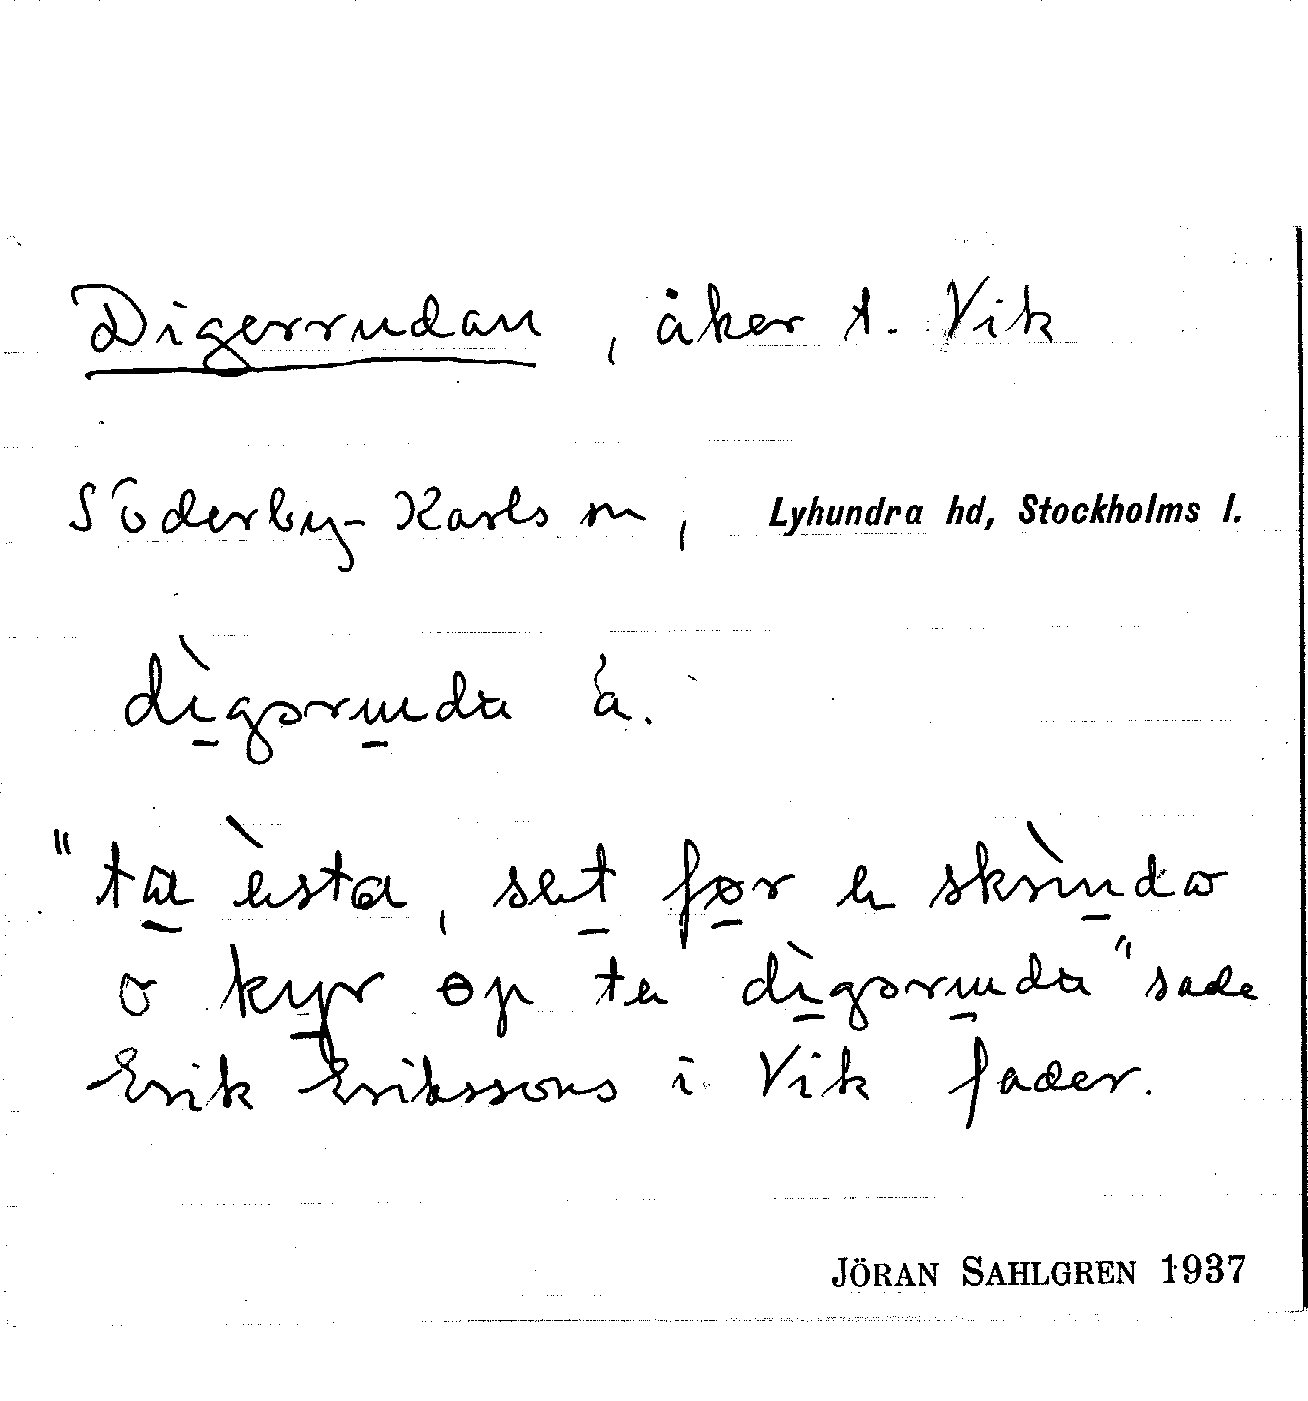 Digerrudan, åker t. Vik
Söderby-Karls sn, Lyhundra hd, Stockholms l.
dìgəruda á.
"ta èsta, set før e skrìnda
o kyr op te dìgəruda" sade
Erik Erikssons i Vik fader.
JÖRAN SAHLGREN 1937